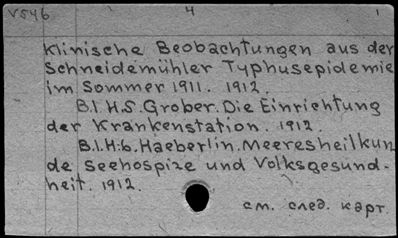 V546 4 1
Klinische Beobachtungen aus der
Schneidemühler Typhusepidemie
im Sommer 1911. 1912.
B.I.H.5. Grober. Die Einrichtung
der Krankenstation. 1912.
B.I.H:6. Haeberlin. Meeresheilkun
de Seehospize und Volksgesund-
heit. 1912.
см. след. карт.